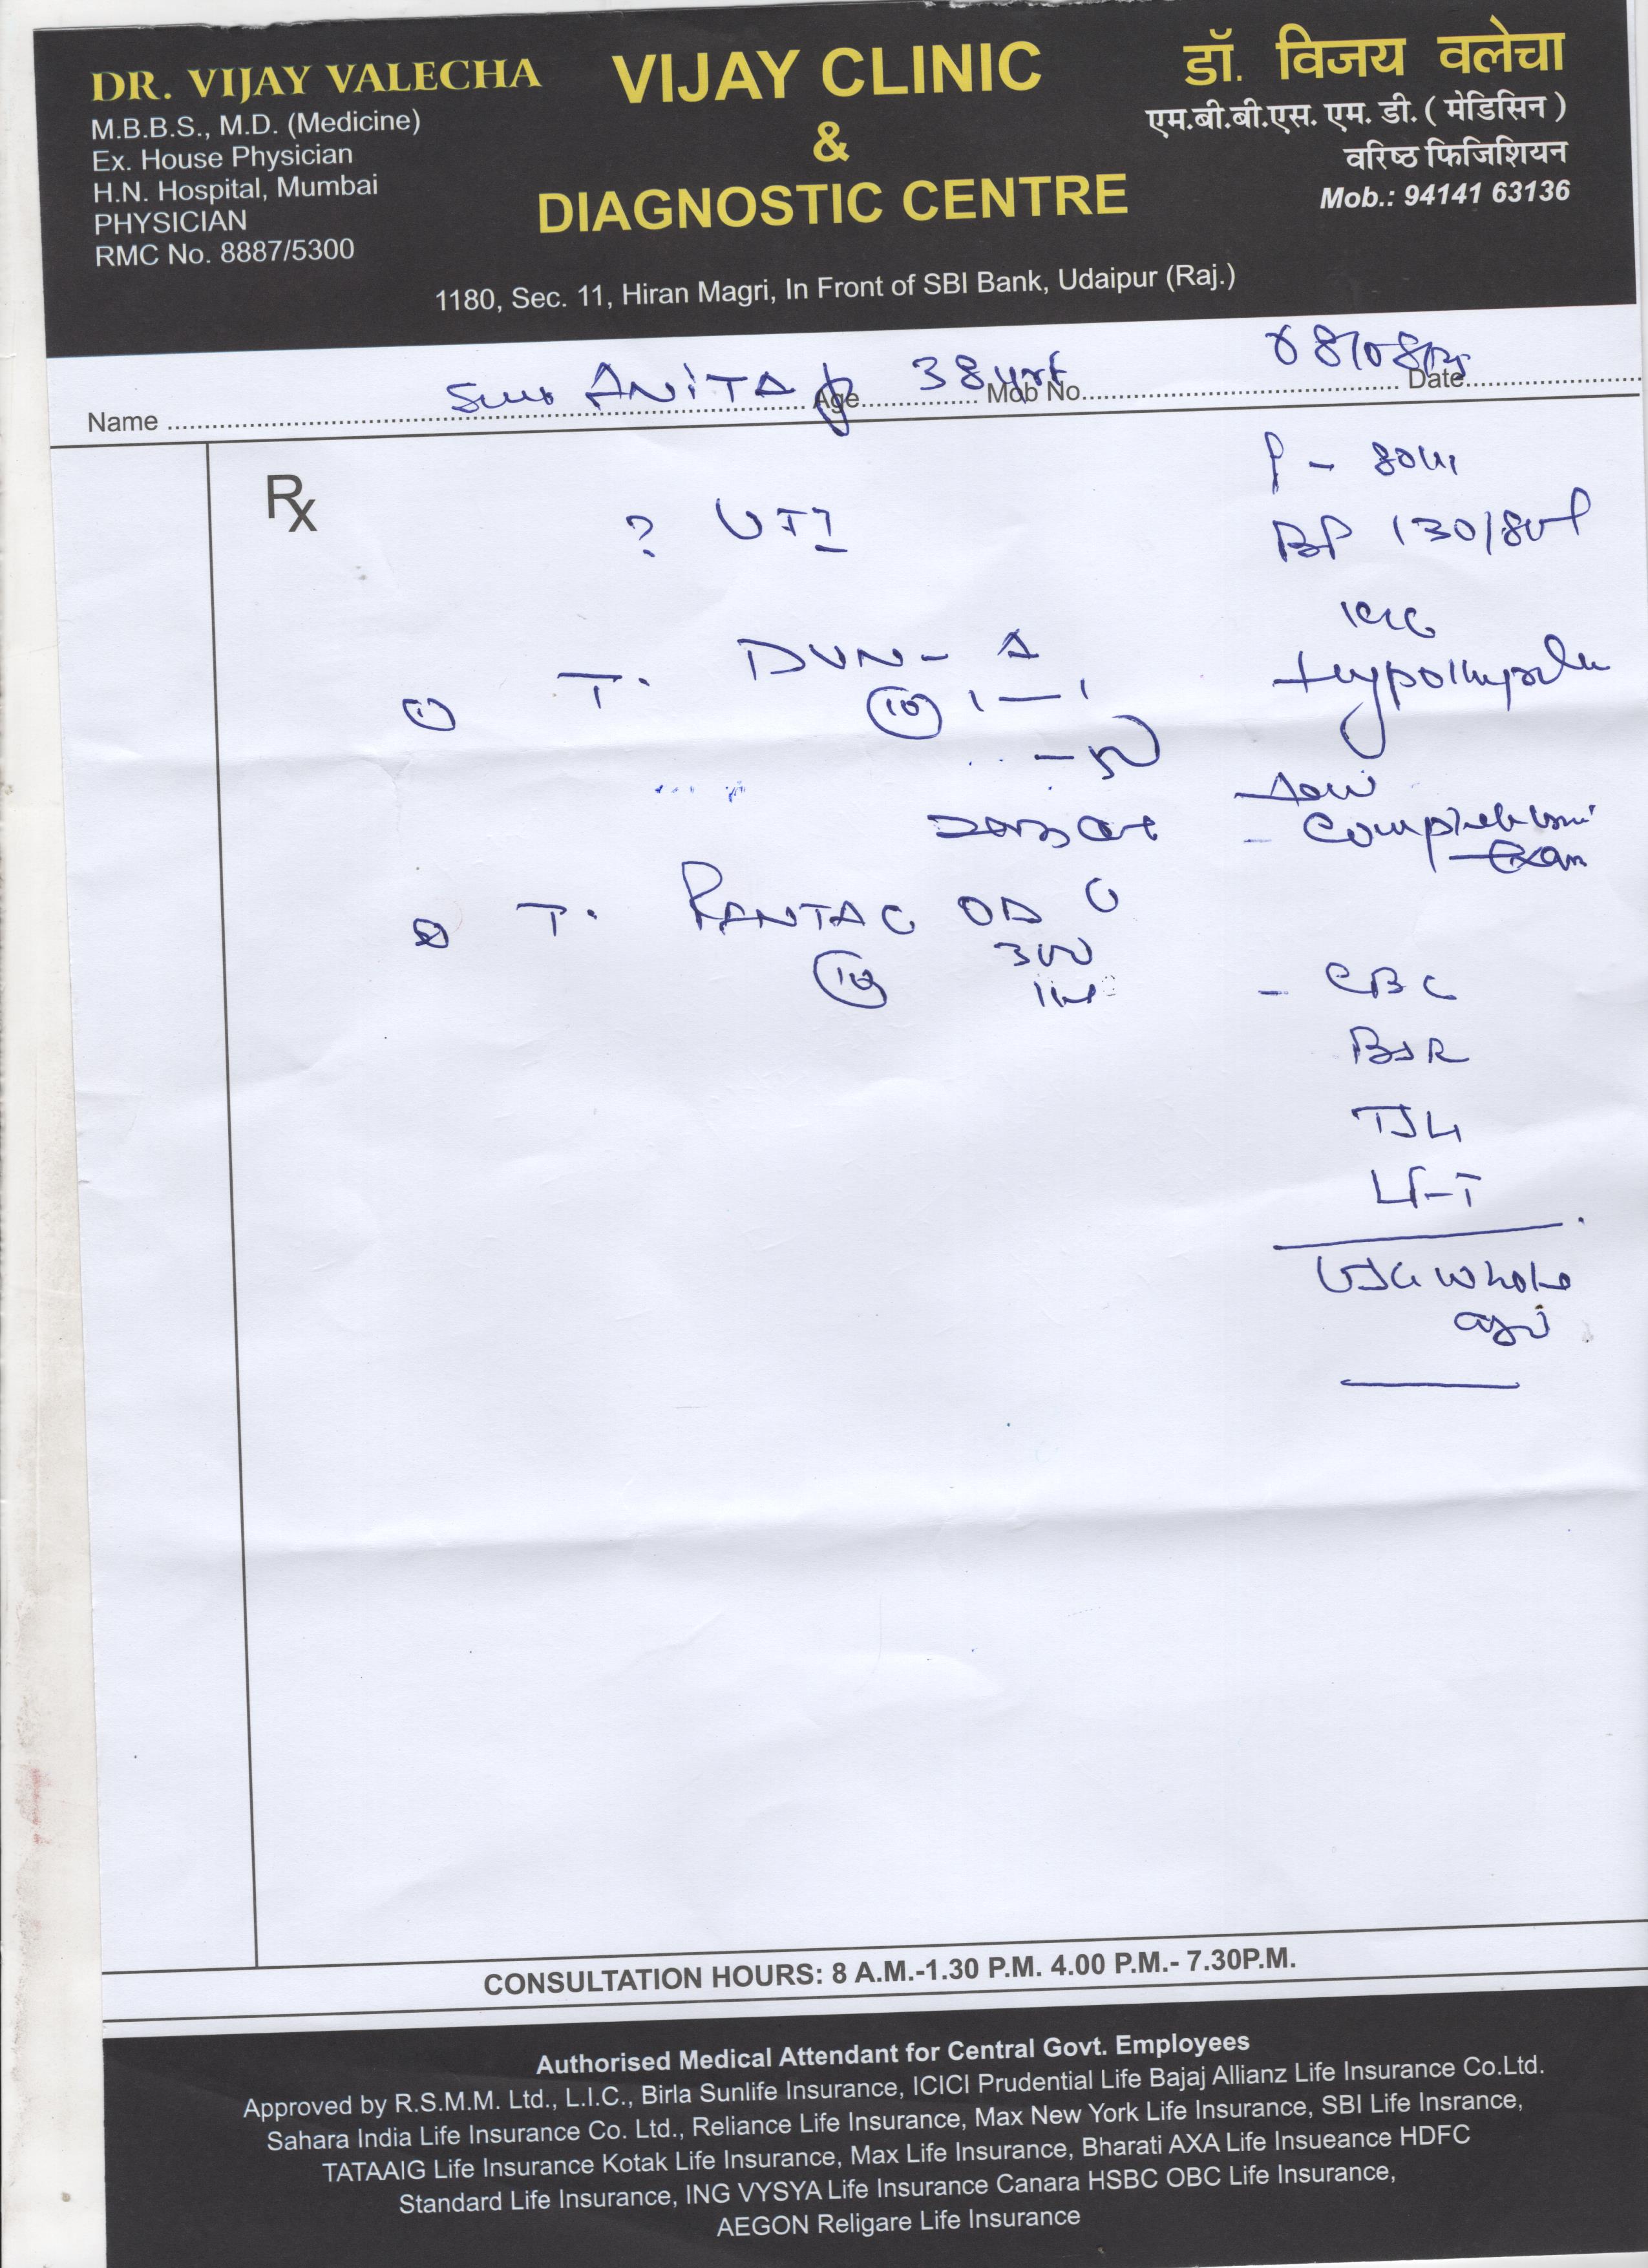 DR. VIJAY VALECHA
M.B.B.S., M.D. (Medicine)
Ex. House Physician
H.N. Hospital, Mumbai
PHYSICIAN
RMC No. 8887/5300
VIJAY CLINIC
&
DIAGNOSTIC CENTRE
डॉ. विजय वलेचा
एम.बी.बी.एस. एम. डी. ( मेडिसिन )
वरिष्ठ फिजिशियन
Mob.: 94141 63136
1180, Sec. 11, Hiran Magri, In Front of SBI Bank, Udaipur (Raj.)
Name ANITA Age 38 yrs Mob No. Date
Rx
P -
? UTI
BP 130/80
① T. DUN-
10 1 — 1
- Comp
Exam
T. RANTAC OD
300
10
- CBC
BSR
TSH
LFT
USG whole
CONSULTATION HOURS: 8 A.M.-1.30 P.M. 4.00 P.M.- 7.30P.M.
Authorised Medical Attendant for Central Govt. Employees
Approved by R.S.M.M. Ltd., L.I.C., Birla Sunlife Insurance, ICICI Prudential Life Bajaj Allianz Life Insurance Co.Ltd.
Sahara India Life Insurance Co. Ltd., Reliance Life Insurance, Max New York Life Insurance, SBI Life Insrance,
TATAAIG Life Insurance Kotak Life Insurance, Max Life Insurance, Bharati AXA Life Insueance HDFC
Standard Life Insurance, ING VYSYA Life Insurance Canara HSBC OBC Life Insurance,
AEGON Religare Life Insurance